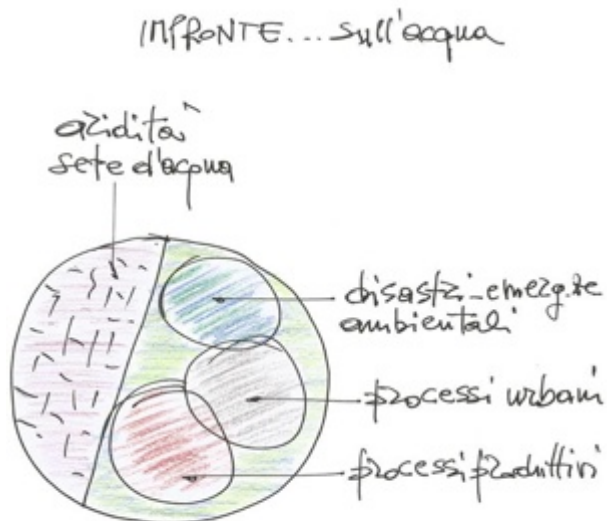 IMPRONTE... sull'acqua
aridità
sete d'acqua
disastri-emerg.ze
ambientali
processi urbani
processi produttivi